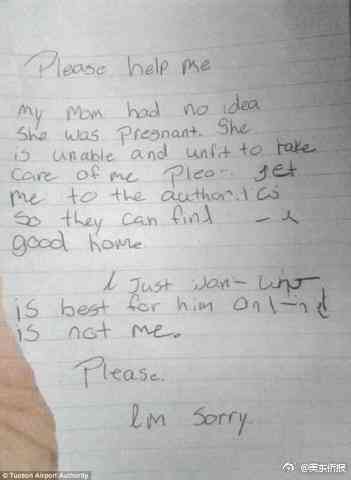 Please help me
my Mom had no idea
She was Pregnant. She
is unable and unfit to take
Care of me Get
me to the
So they can find
good home
I Just
is best for him and
is not me.
Please.
Im Sorry.
© Tucson Airport Authority
@美东侨报